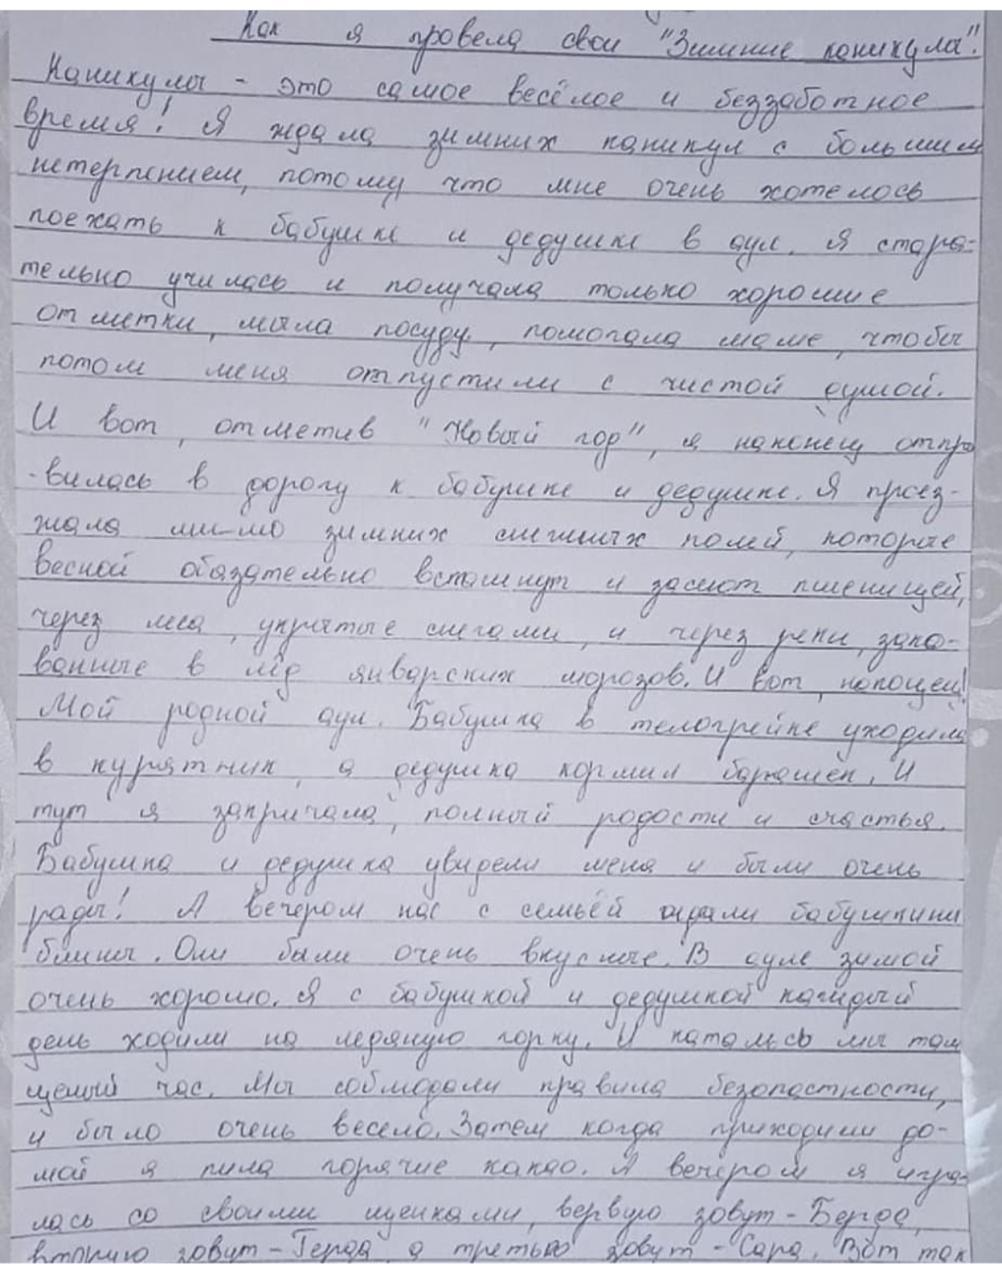 Как я провела свои "Зимние каникула".
Каникулы - это самое весёлое и беззаботное
время! Я ждала зимних каникул с большим
нетерпением, потому что мне очень хотелось
поехать к бабушке и дедушке в аул. Я стара-
тельно училась и получала только хорошие
отметки, мыла посуду, помогала маме, чтобы
потом меня отпустили с чистой душой.
И вот, отметив "Новый год", я наконец отпра
-вилась в дорогу к бабушке и дедушке. Я проез-
жала мимо зимних снежных полей, которые
весной обязательно вспашут и засеют пшеницей,
через леса, укрытые снегами, и через реки, зако-
ванные в лёд январских морозов. И вот, наконец!
Мой родной аул. Бабушка в телогрейке уходила
в курятник, а дедушка кормил барашек. И
тут я закричала, полный радости и счастья.
Бабушка и дедушка увидели меня и были очень
рады! А вечером нас с семьёй ждали бабушкины
блины. Они были очень вкусные. В ауле зимой
очень хорошо. Я с бабушкой и дедушкой каждый
день ходили на ледяную горку. И катались мы там
целый час. Мы соблюдали правила безопастности,
и было очень весело. Затем когда приходили до-
мой я пила горячие какао. А вечером я игра-
лась со своими щенками, первую зовут - Берта,
вторую зовут - Герда а третью зовут - Сара. Вот так